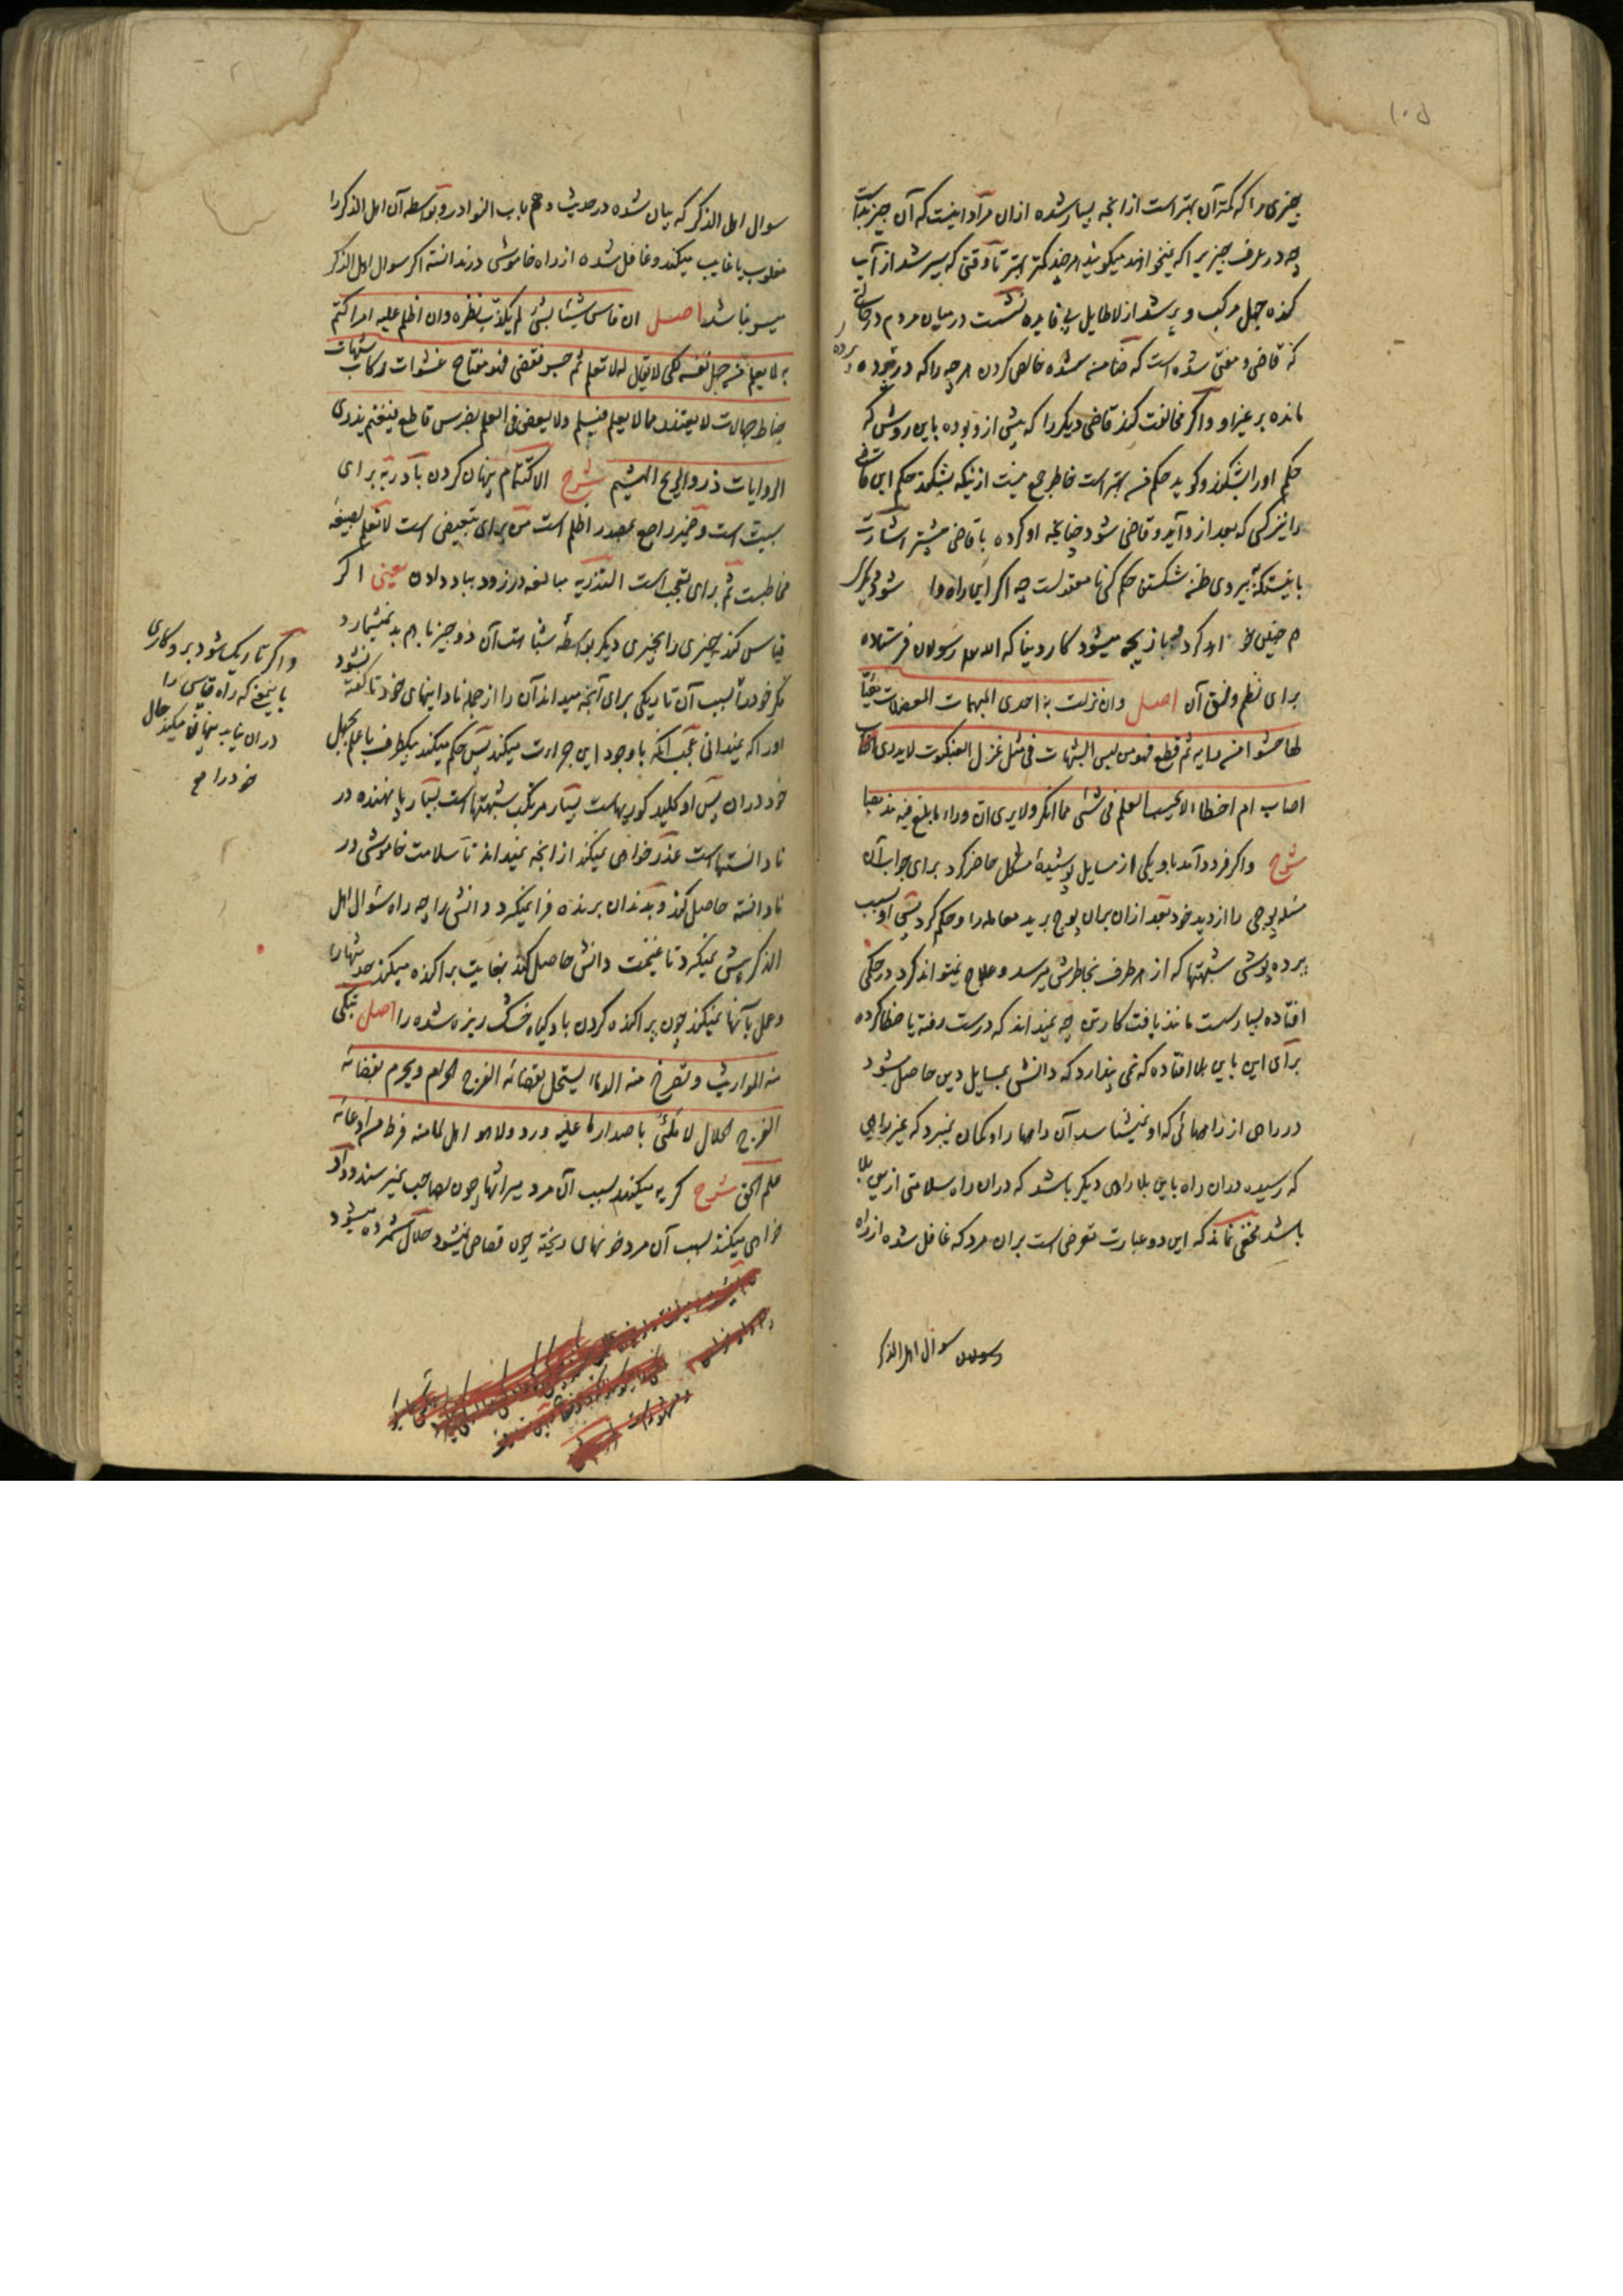 ١٠٥
چیزی را که کمتر آن بهتر است از انچه بسیار شده ازان مراد اینست که آن چیز بد است
چه در عرف چیزیرا که نمیخواهند میکویند هر چند کمتر بهتر تا وقتی که سیر شد از آب
کنده جهل مرکب و پر شد از لاطایل بی فایده نشست در میان مردم در حالتی
که قاضی و مفتی شده است که ضامن شده خالص کردن هر چه را که در پرده
مانده بر غیر او و اگر مخالفت کند قاضی دیکر را که پیش ازو بوده باین روش که
حکم اورا بشکند و کوید حکم من بهتر است خاطر جمع نیست ازینکه بشکند حکم این قاضی
را نیز کسی که بعد ازو آید و قاضی شود چنانچه او کرده با قاضی پیشتر اشارت
باینستکه پیروی ظن و شکستن حکم کسی نامعقولست چه اگر این راه وا شود دیکری
هم چنین خواهد کرد و بازیچه میشود کار دینها که الله رسولان فرستاده
برای نظم و نسق آن اصل وان نزلت به احدی المبهمات المعضلات هیّأ
لها حشوا من رایه ثم قطع فهو من لبس الشبهات فی مثل غزل العنکبوت لا یدری
اصاب ام اخطا لا یحسب العلم فی شئی مما انکر ولا یری ان وراء ما بلغ فیه مذهبا
شرح واگر فرود آمد باو یکی از مسایل پوشیدهٔ مشکل حاضر کرد برای جواب آن
مسئله پوچی را از دید خود بعد ازان بران پوچ برید معامله را و حکم کرد پس او بسبب
پرده پوشی شبهتها که از هر طرف بخاطرش میرسد و علاج نمیتواند کرد در حکمی
افتاده بسیار سست مانند بافت کارتن چه نمیداند که درست رفته یا خطا کرده
برای این باین بلا افتاده که نمی پندارد که دانش بمسایل دین حاصل شود
در راهی از راههائی که او نمیشناسد آن راهها را و کمان نمیبرد که غیر راهی
که رسیده دران راه باین بلا راهی دیکر باشد که دران راه سلامتی ازین بلا
باشد مخفی نماند که این دو عبارت تعرض است بران مرد که غافل شده از راه
رسولان سوال اهل الذکر
سوال اهل الذکر که بیان شده در حدیث دهم باب النوادر و بواسطه آن اهل الذکر را
مغلوب یا غایب میکند و غافل شده از راه خاموشی در ندانسته اکر سوال اهل الذکر
میسر نباشد اصل ان قاس شیئا بشئ لم یکذب نظره وان اظلم علیه امر اکتتم
به لما یعلم من جهل نفسه لکی لا یقال له لا تعلم ثم جسر فقضی فهو مفتاح عشوات رکاب شبهات
خباط جهالات لا یعتذر مما لا یعلم فیسلم ولا یعض فی العلم بضرس قاطع فیغنم یذری
الروایات ذرو الریح الهشیم شرح الاکتتام پنهان کردن با در به برای
سببیت است و ضمیر راجع بمصدر اظلم است من برای تبعیض است لا تعلم بصیغه
مخاطبست ثم برای تعجب است التذریه مبالغه در زود بباد دادن یعنی اکر
قیاس کند چیزی را بچیزی دیکر بواسطهٔ شباهت آن دو چیز با هم بد نمیشمارد
فکر خود را بسبب آن تاریکی برای آنچه میداند آن را از جمله نادانیهای خود تا کفته نشود
اورا که نمیدانی عجب آنکه باوجود این جراءت میکند پس حکم میکند بیکطرف با علم بجهل
خود دران پس او کلید کوریهاست بسیار مرتکب شبهتهاست بسیار پا نهنده در
نادانستهاست عذر خواهی نمیکند از انچه نمیداند تا سلامت خاموشی در
نادانسته حاصل کند و بدندان برنده فرا نمیکیرد دانش را چه راه سئوال اهل
الذکر پیش نمیکیرد تا غنیمت دانش حاصل کند بغایت پراکنده میکند حدیثها را
و عمل بآنها نمیکند چون پراکنده کردن باد کیاه خشک ریزه شده را اصل تبکی
منه المواریث و تصرخ منه الدماء یستحل بقضائه الفرج الحرام و یحرم بقضائه
الفرج الحلال لا ملئ باصدار ما علیه ورد ولا هو اهل لما منه فرط من ادعائه
علم الحق شرح کریه میکنند بسبب آن مرد میراثها چون بصاحب نمیرسند و داد
خواهی میکنند بسبب آن مرد خونهای ریخته چون قصاص نمیشود حلال شمرده میشود
و اکر تاریک شود برو کاری
باینمعنی که راه قیاس را
دران نیابد پنهان میکند حال
خود را مع